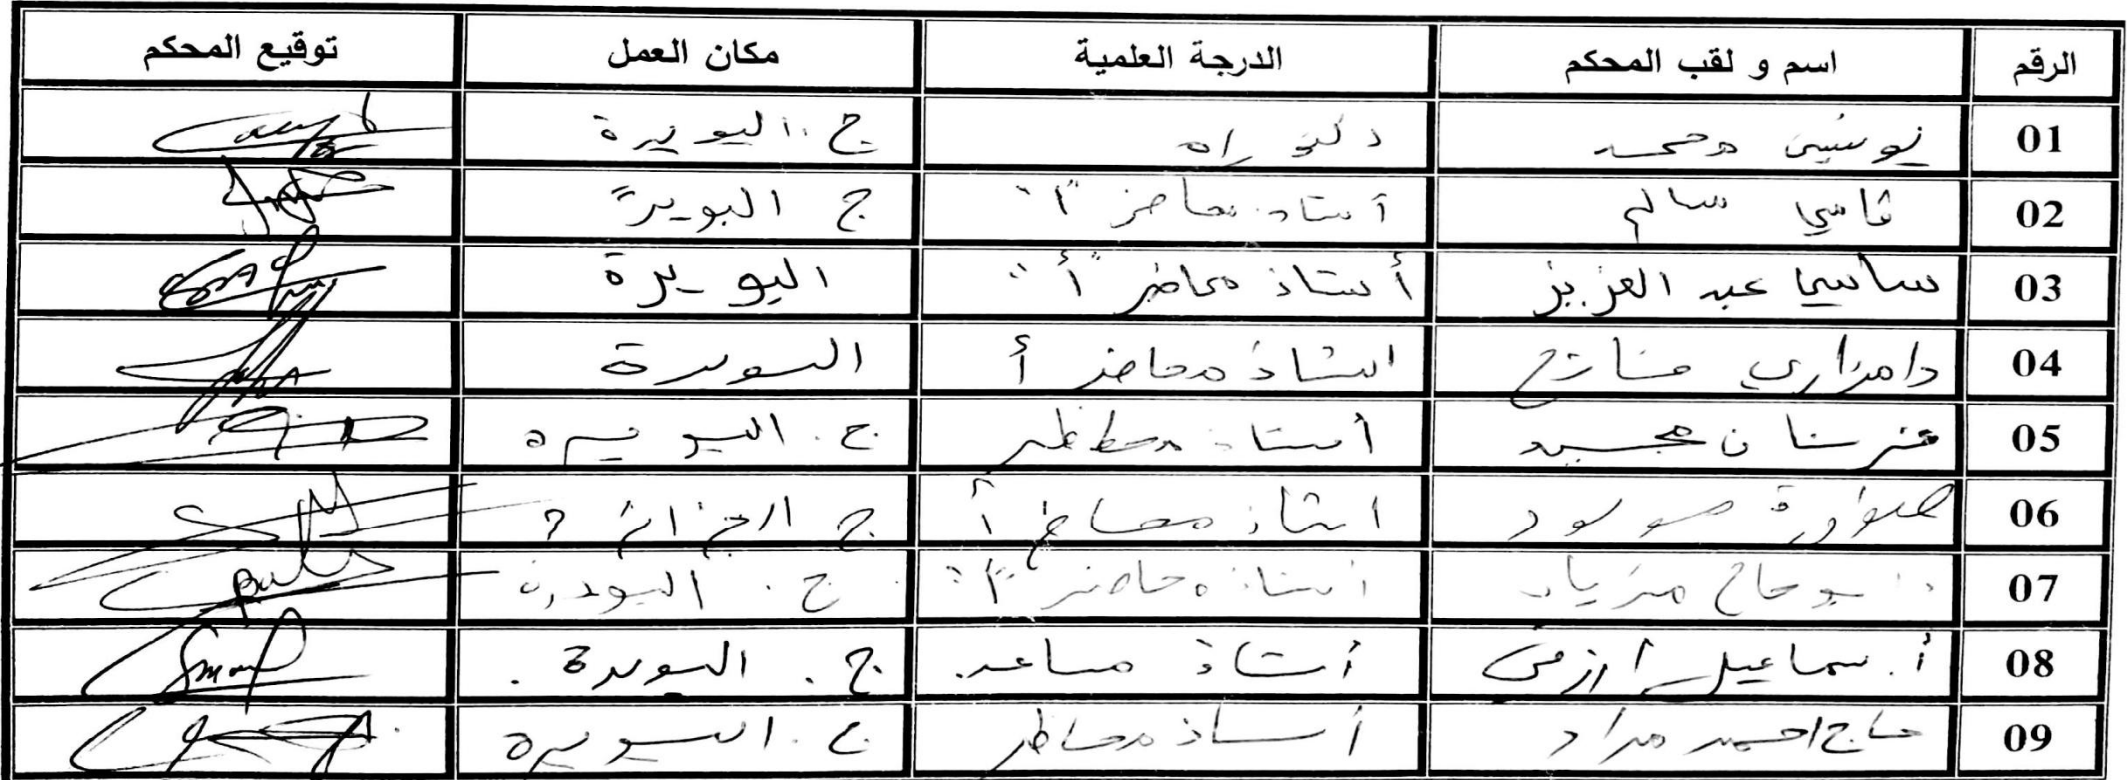 الرقم اسم و لقب المحكم الدرجة العلمية مكان العمل توقيع المحكم
01 يونسي محمد دكتوراه ج. البويرة
02 قاسي سالم أستاذ محاضر "أ" ج البويرة
03 ساسي عبد العزيز أستاذ محاضر "أ" البويرة
04 رامزاري أستاذ محاضر أ البويرة
05 فرنان مجيد أستاذ محاظر ج. البويرة
06 أستاذ محاضر أ ج الجزائر
07 بوحاج مزيان أستاذ محاضر "أ" ج. البويرة
08 أ. سماعيل أرزقي أستاذ مساعد. ج. البويرة.
09 حاج احمد مراد أستاذ محاظر ج. البويرة